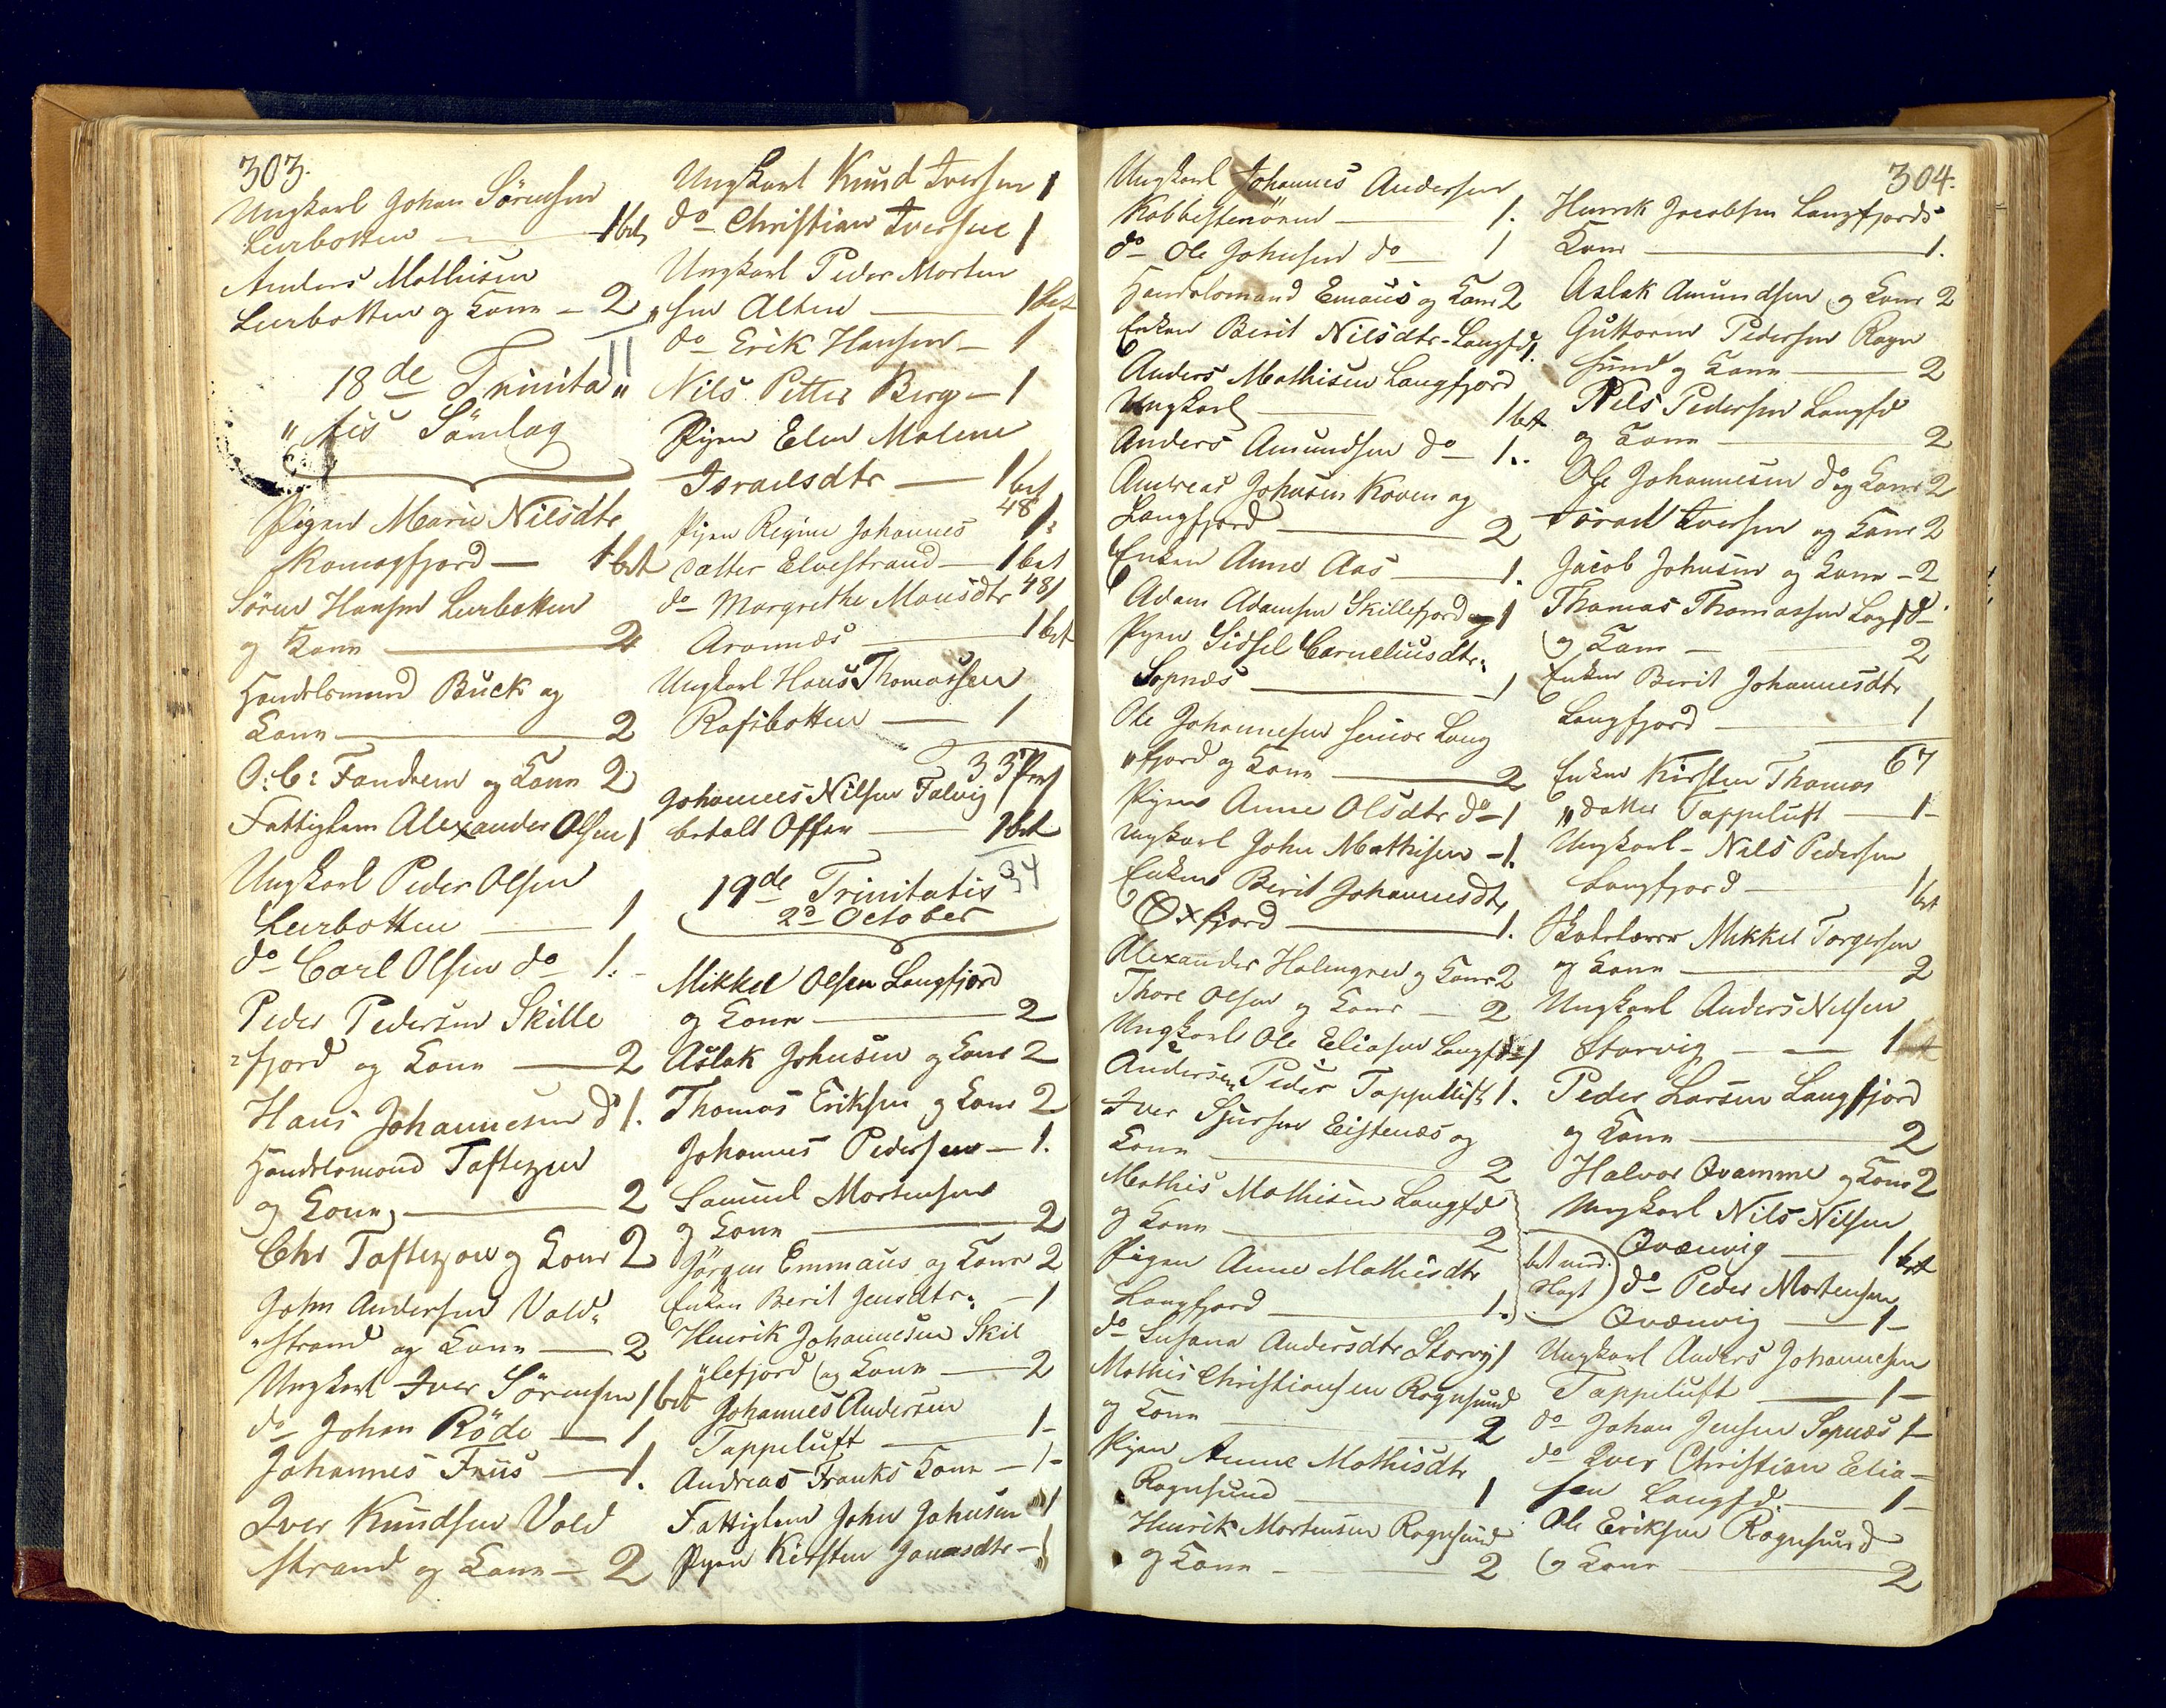 303.
Ungkarl Johan Sörensen
Leirbotten 1 bet
Anders Mathisen
Leirbotten og Kone - 2
18de Trinita„
„tis Söndag
Pigen Marie Nilsdtr
Komagfjord — 1 bet
Sören Hansen Leirbotten
og Kone 2
Handelsmand Buck og
Kone 2
O: C: Fandrem og Kone 2
Fattiglem Alexander Olsen 1
Ungkarl Peder Olsen
Leirbotten 1
do Carl Olsen do 1.
Peder Pedersen Skille
fjord og Kone 2
Hans Johannesen do 1.
Handelsmand Taftezon
og Kone 2
Chr Taftezon og Kone 2
John Andersen Vold
strand og Kone 2
Ungkarl Iver Sörensen 1 bet
do Johan Röde 1
Johannes Friis 1.
Iver Knudsen Vold
strand og Kone - 2
Ungkarl Knud Iversen 1
do Christian Iversen 1
Ungkarl Peder Morten
„sen Alten 1 bet
do Erik Hansen - 1
Nils Petter Berg - 1
Pigen Elen Malene
Israelsdtr 1 bet
48
Pigen Regine Johannes 1
datter Elvestrand 1 bet
do Margrethe Monsdtr 48 1
Aronnæs 1 bet
Ungkarl Hans Thomassen
Rafsbotten 1
33
Johannes Nilsen Talvig
betalt Offer 1 bet
34
19de Trinitatis
2d October
Mikkel Olsen Langfjord
og Kone 2
Aslak Johnsen og Kone 2
Thomas Eriksen og Kone 2
Johannes Pedersen - 1.
Samuel Mortensen
og Kone 2
Jörgen Emmaus og Kone 2
Enken Berit Jensdtr - 1
Henrik Johannesen Skil
„lefjord og Kone 2
Johannes Andersen
Tappeluft 1 -
Andreas Franks Kone - 1 -
Fattiglem John Johnsen 1
Pigen Kirsten Jonasdtr - 1
304.
Ungkarl Johannes Andersen
Kobbestenören 1.
do Ole Johnsen do 1
Handelsmand Emaus og Kone 2
Enken Berit Nilsdtr - Langfd 1.
Anders Mathisen Langfjord
Ungkarl 1 bet
Anders Amundsen do 1.
Andreas Johnsen Koven og
Langfjord 2
Enken Anne Aas 1.
Adam Adamsen Skillefjord 1
Pigen Sidsel Corneliusdtr
Sopnæs 1
Ole Johannesen Senior Lang
„fjord og Kone 2
Pigen Anne Olsdtr do - 1
Ungkarl John Mathisen - 1.
Enken Berit Johannesdtr
Oxfjord 1.
Alexander Holmgren og Kone 2
Thore Olsen og Kone - 2
Ungkarl Ole Eliasen Langfd 1
Andersen Peder Tappeluft 1.
Iver Sjursen Leistenæs og
Kone 2
Mathis Mathisen Langfd
og Kone 2
Pigen Anne Mathisdtr
Langfjord 1.
bet med
Slagt
do Susana Andersdtr Storvig 1
Mathis Christiansen Rognsund
og Kone 2
Pigen Anne Mathisdtr
Rognsund 1
Henrik Mortensen Rognsund
og Kone 2
Henrik Jacobsen Langfjords
Kone 1.
Aslak Amundsen og Kone 2
Guttorm Pedersen Rogn
sund og Kone 2
Nils Pedersen Langfd
og Kone 2
Ole Johannesen do og Kone 2
Israel Iversen og Kone 2
Jacob Johnsen og Kone - 2
Thomas Thomassen Lagfd
og Kone - 2
Enken Berit Johannesdtr
Langfjord 1
67
Enken Kirsten Thomas
„datter Tappeluft 1 -
Ungkarl - Nils Pedersen
Langfjord 1 bet
Skolelærer Mikkel Torgersen
og Kone 2
Ungkarl Anders Nilsen
Storvig 1
Peder Larsen Langfjord
og Kone 2
Halvor Qvamme og Kone 2
Ungkarl Nils Nilsen
Qvænvig 1 bet
do Peder Mortensen
Qvænvig 1 -
Ungkarl Anders Johannesen
Tappeluft 1 -
do Johan Jensen Sopnæs 1 -
do Iver Christian Elia -
sen Langfd. 1 -
Ole Eriksen Rognsund
og Kone 2